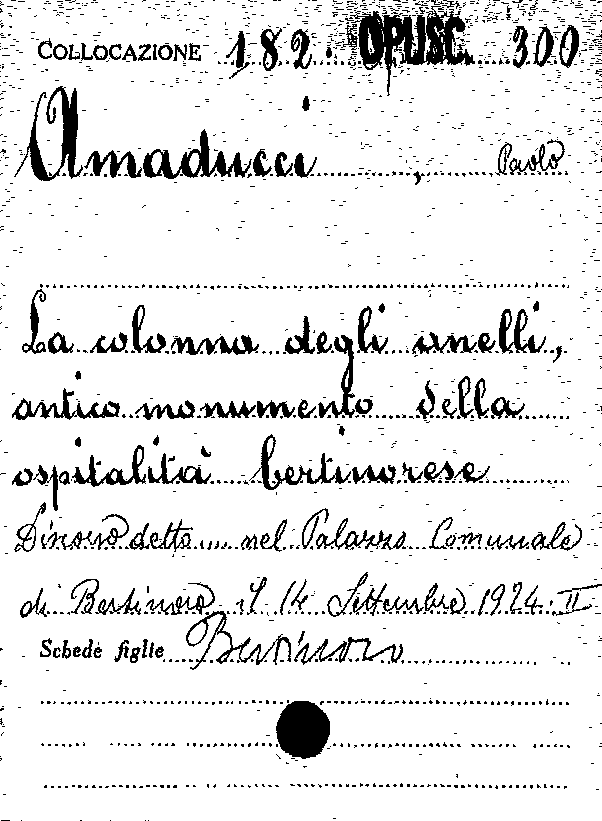 COLLOCAZIONE 182. OPUSC. 300
Amaducci, Paolo
La colonna degli anelli,
antico monumento della
ospitalità bertinorese
Discorso detto.... nel Palazzo Comunale
di Bertinoro il 14 Settembre 1924. II
Schede figlie Bertinoro